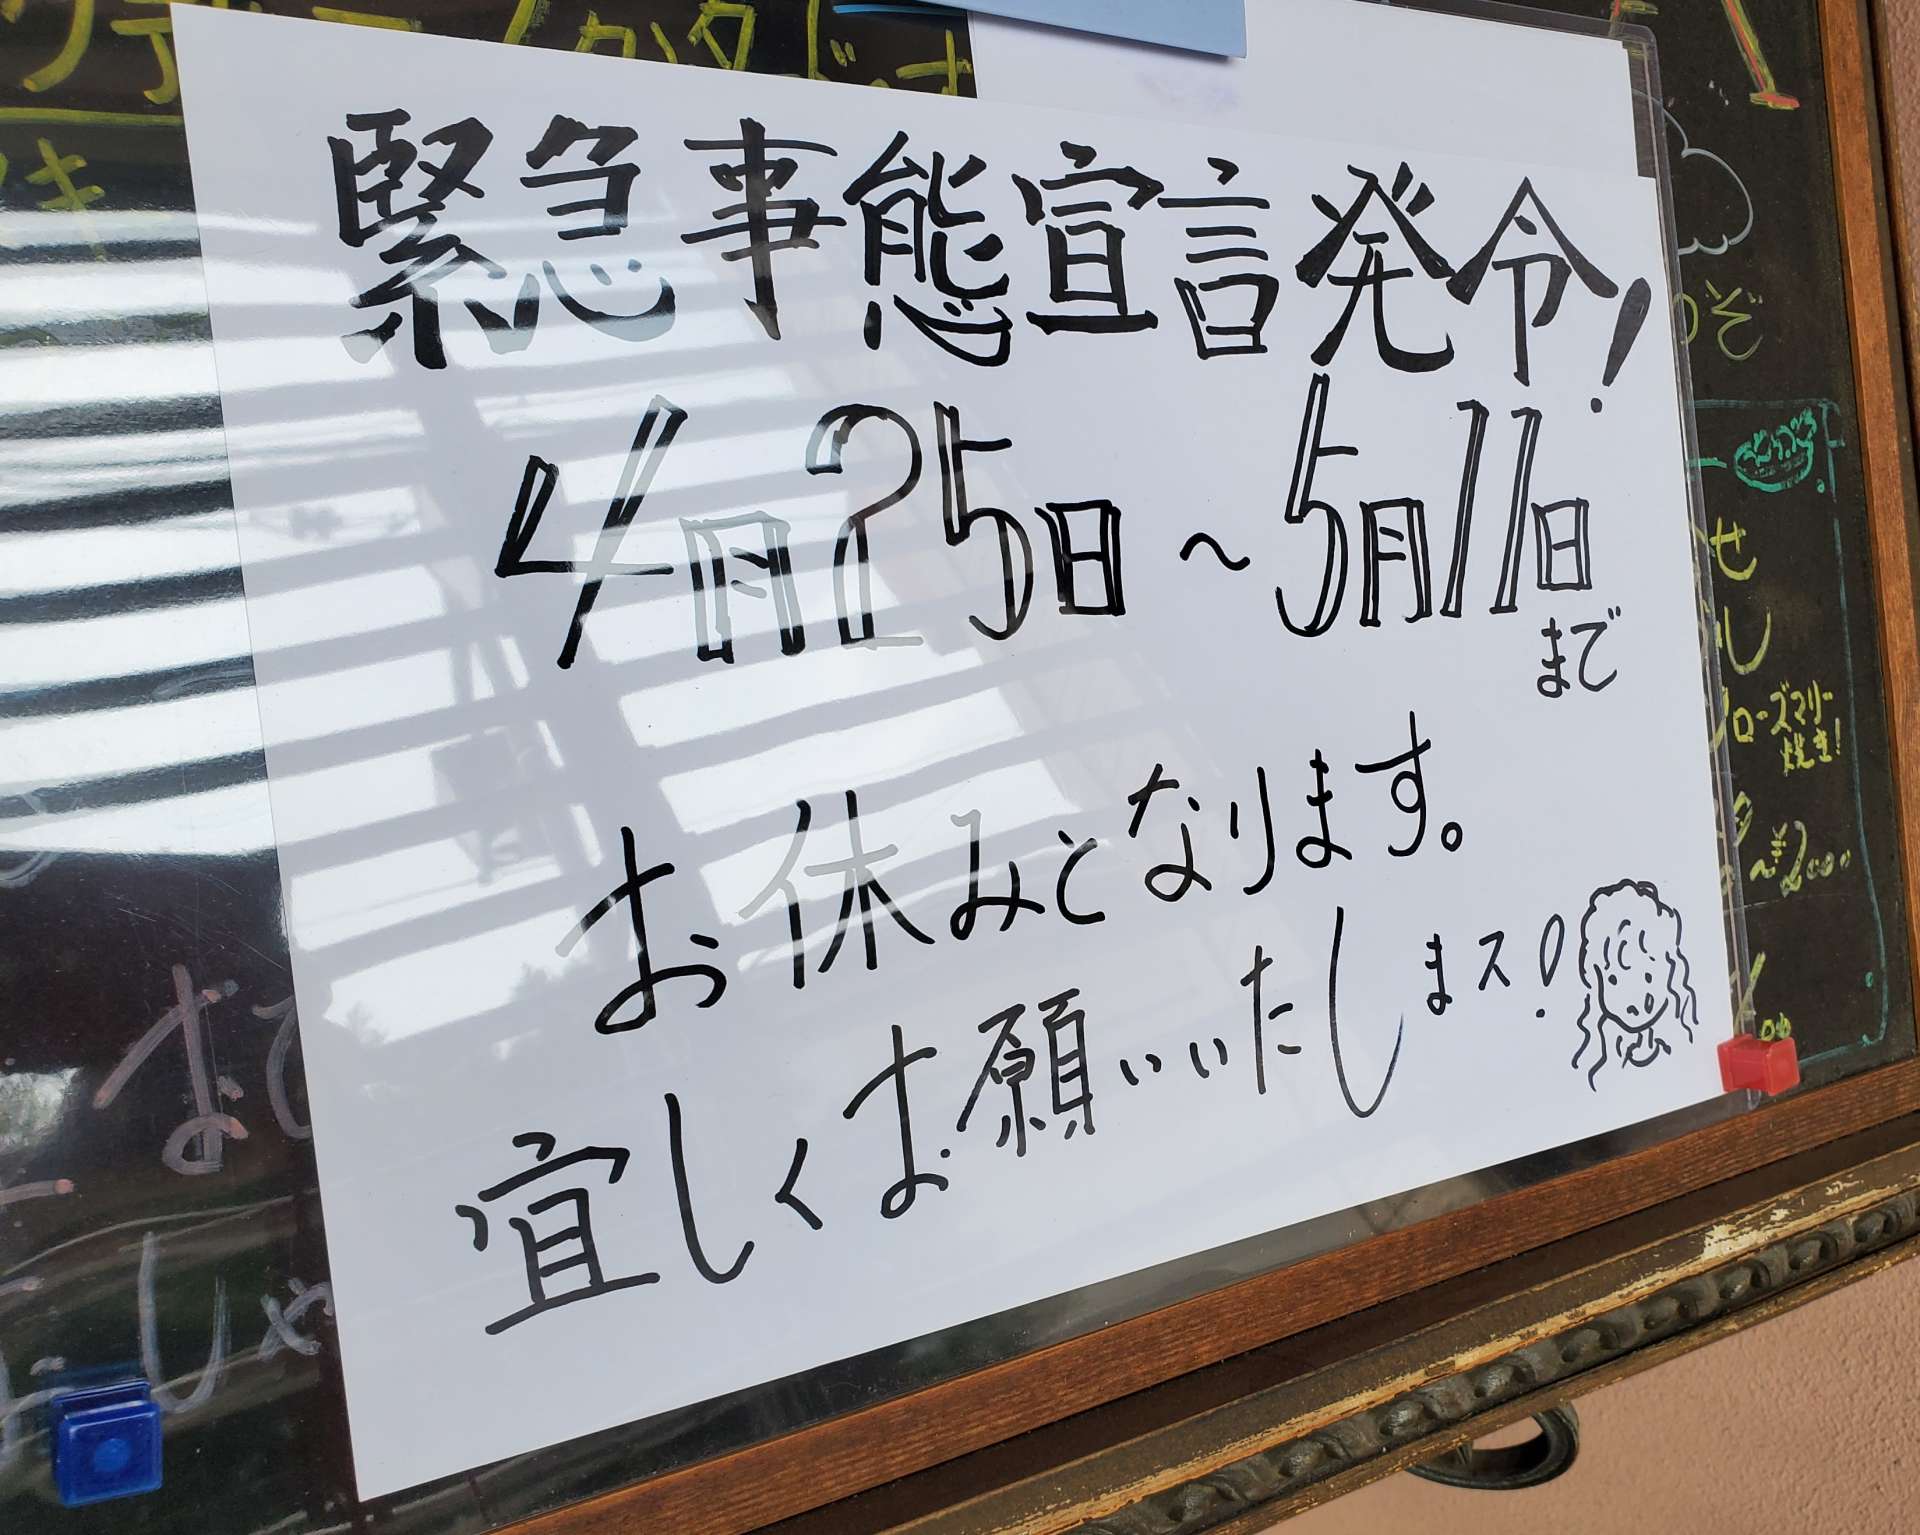 緊急事態宣言発令!
4月25日～5月11日
まで
お休みとなります。
宜しくお願いいたしまス!
のぞ
せ
ローズマリー
焼き!
~¥2000